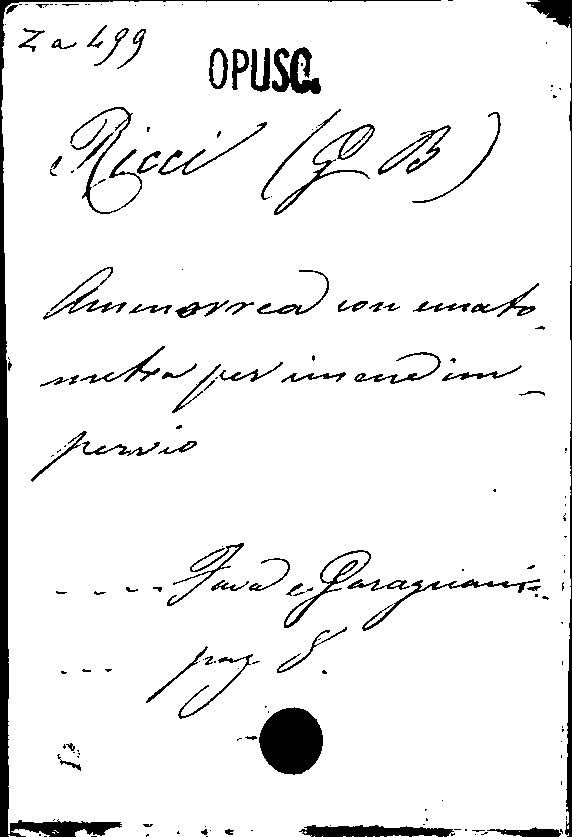 Z a 499
OPUSC.
Ricci (G B)
Amenorrea con emato-
metra per imene im-
pervio
---- Fava e Garagnani -
--- pag 8.